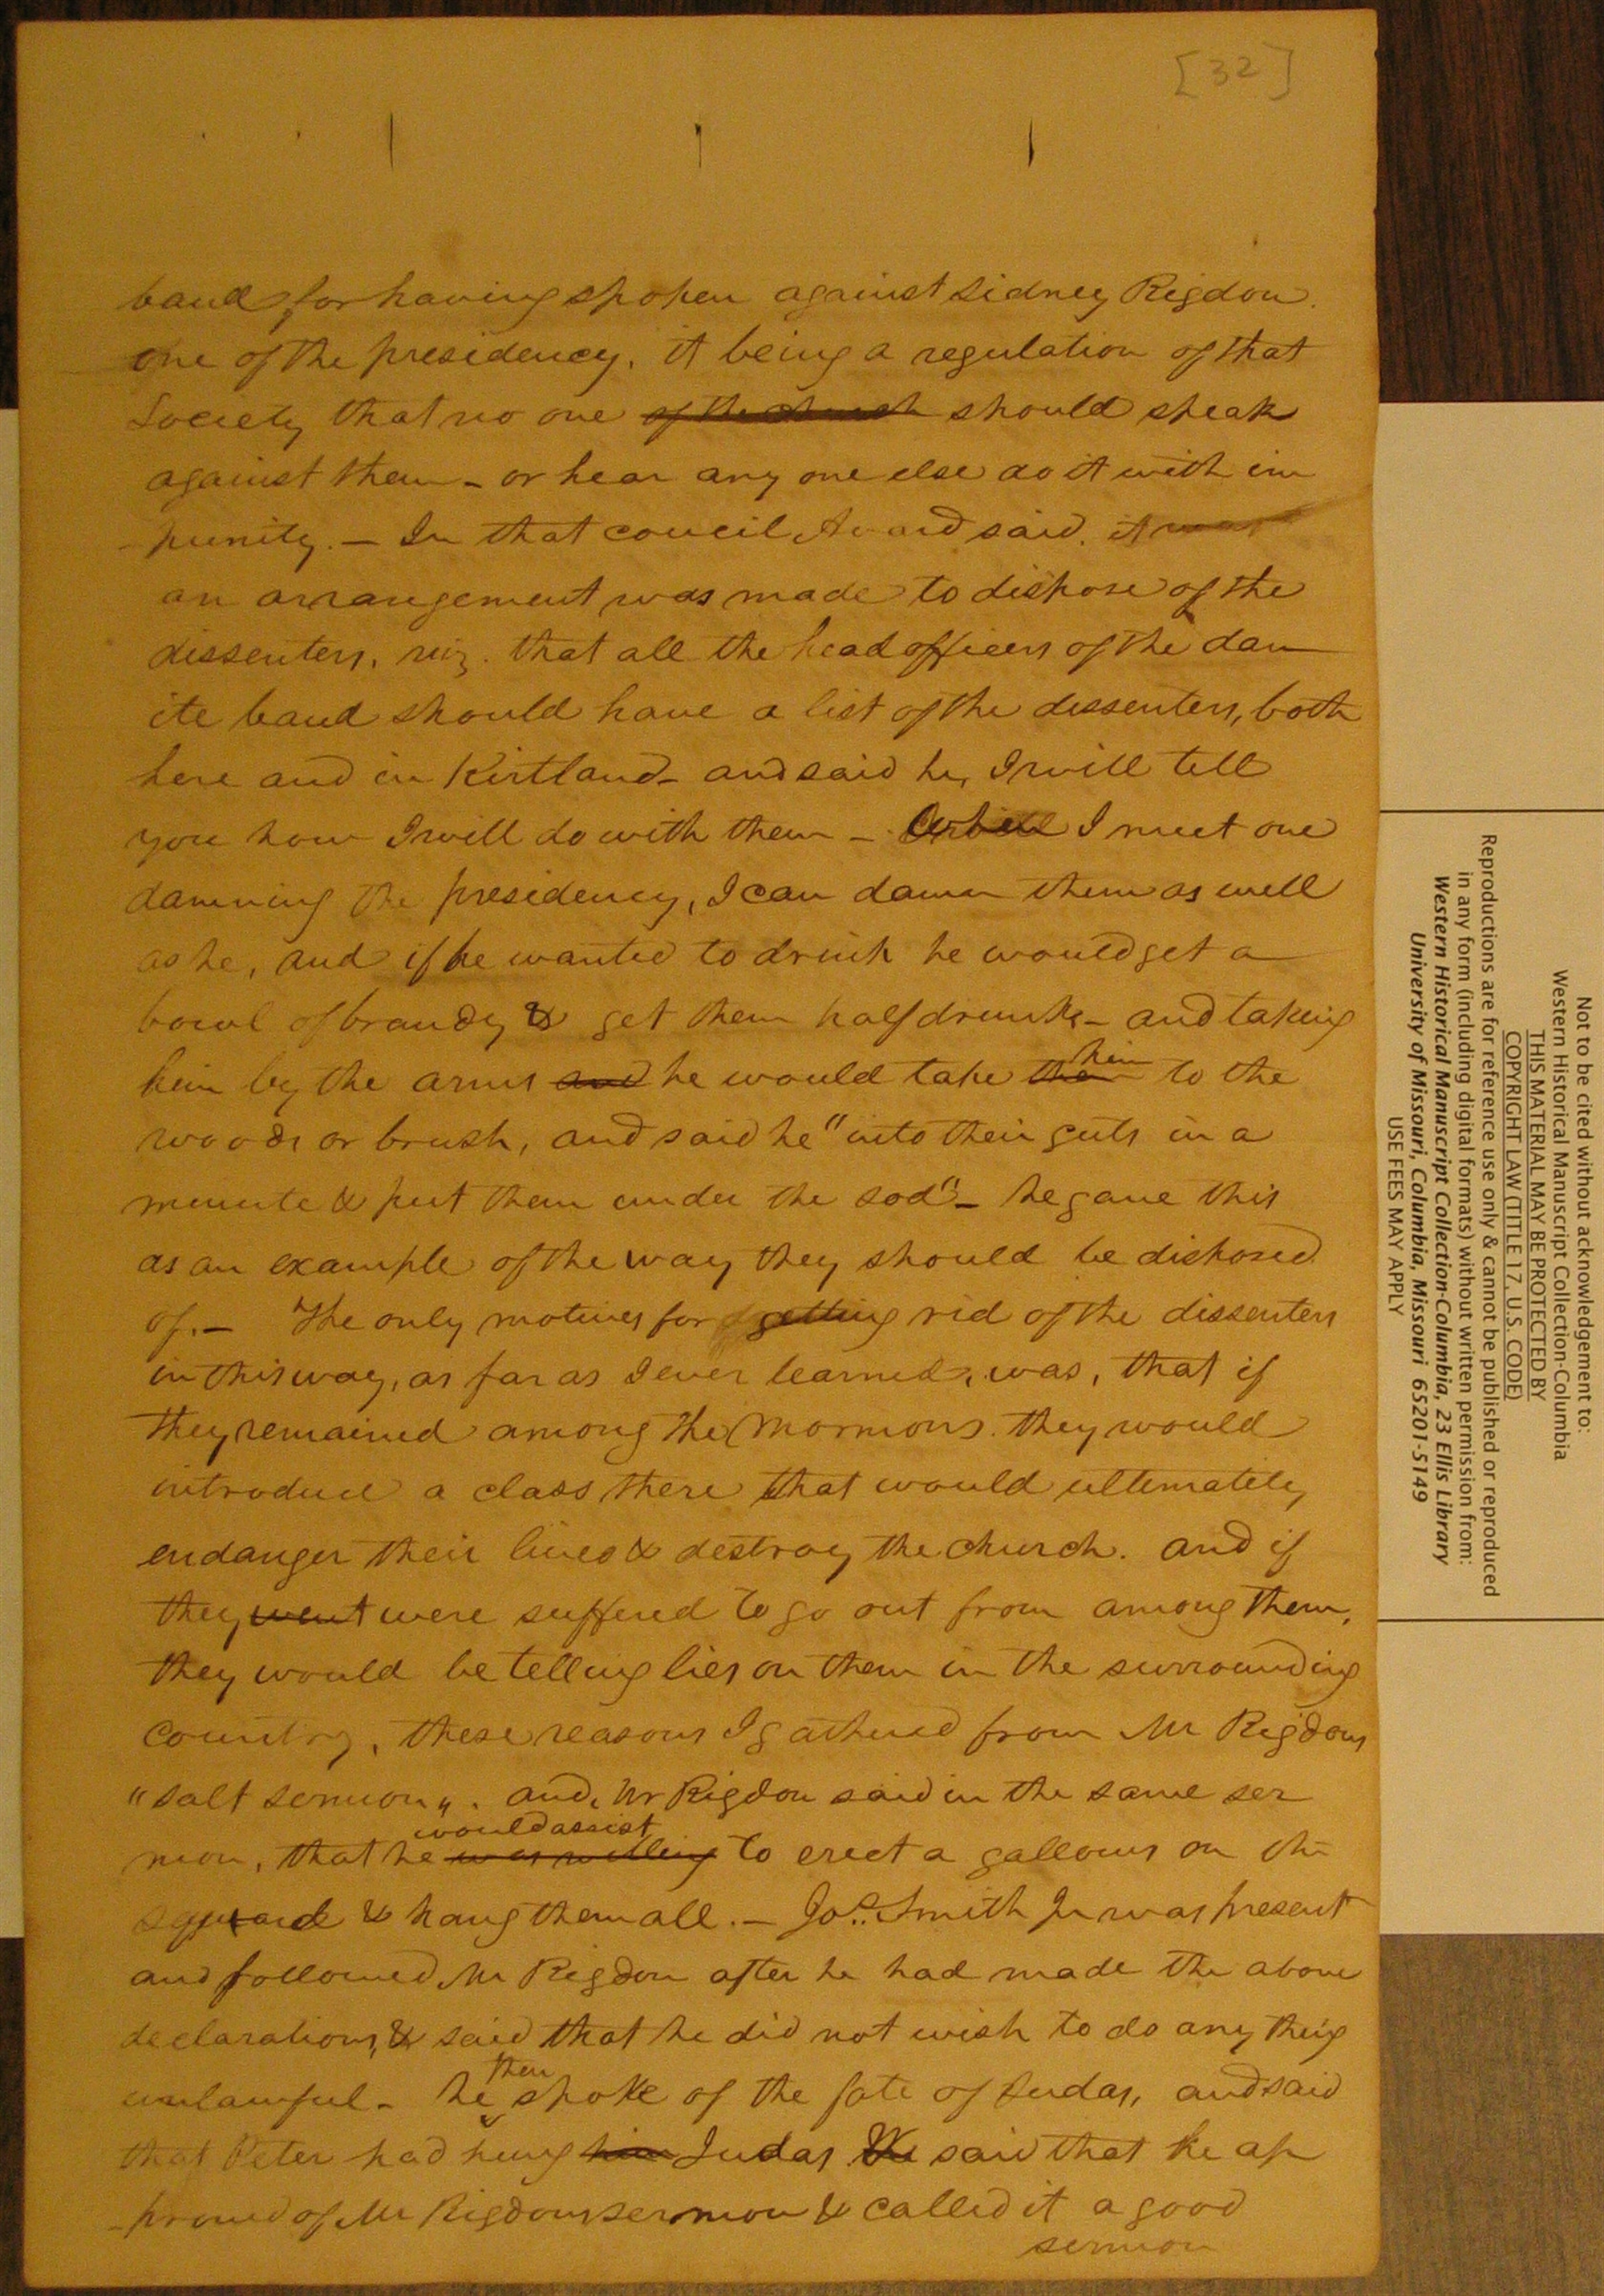 [32]
band for having spoken against Sidney Rigdon.
one of the presidency, it being a regulation of that
Society that no one of the church should speak
against them - or hear any one else do it with im
punity. — In that council Avard said. it was
an arrangement was made to dispose of the
dissenters, viz. that all the head officers of the dan
ite band should have a list of the dissenters, both
here and in Kirtland - and said he, I will tell
you how I will do with them — when I meet one
damning the presidency, I can damn them as well
as he, and if he wanted to drink he would get a
bowl of brandy & get them half drunk - and taking
him by the arm and he would take them him to the
woods or brush, and said he "into their guts in a
minute & put them under the sod" - he gave this
as an example of the way they should be disposed
of. — The only motives for getting rid of the dissenters
in this way, as far as I ever learned, was, that if
they remained among the Mormons. they would
introduce a class there that would ultimately
endanger their lives & destroy the church. and if
they went were suffered to go out from among them,
they would be telling lies on them in the surrounding
country, these reasons I gathered from Mr Rigdons
"salt sermon". and, Mr Rigdon said in the same ser
would assist
mon, that he was willing to erect a gallows on the
square & hang them all. — Jos. Smith Jr was present
and followed Mr Rigdon after he had made the above
declarations, & said that he did not wish to do any thing
unlawful - he then spoke of the fate of Judas, and said
that Peter had hung him Judas. He said that he ap
proved of Mr Rigdons sermon & called it a good
sermon
Not to be cited without acknowledgement to:
Western Historical Manuscript Collection-Columbia
THIS MATERIAL MAY BE PROTECTED BY
COPYRIGHT LAW (TITLE 17, U.S. CODE)
Reproductions are for reference use only & cannot be published or reproduced
in any form (including digital formats) without written permission from:
Western Historical Manuscript Collection-Columbia, 23 Ellis Library
University of Missouri, Columbia, Missouri 65201-5149
USE FEES MAY APPLY